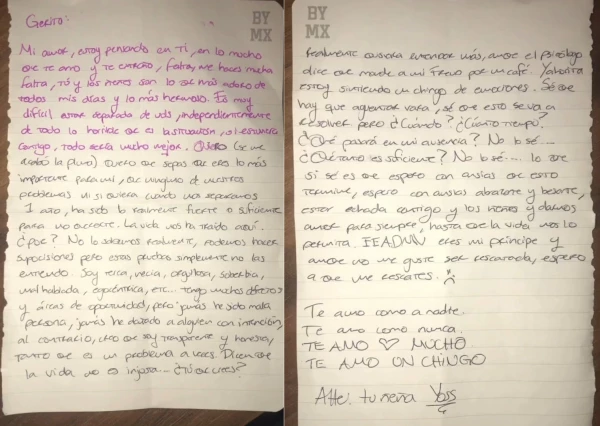 BY
MX
Gerito:
Mi amor, estoy pensando en Ti, en lo mucho
que te amo y te extraño, Falta, me haces mucha
Falta, tú y los nenes son lo que más adoro de
todos mis días y lo más hermoso. Es muy
difícil estar separada de uds, independientemente
de todo lo horrible que es la situación, si estuviera
contigo, todo sería mucho mejor. Quiero (se me
acabó la pluma) Quiero que sepas que eres lo más
importante para mí, que ninguno de nuestros
problemas ni siquiera cuando nos separamos
1 año, ha sido lo realmente fuerte o suficiente
para no quererte. La vida nos ha traído aquí.
¿Por? No lo sabemos realmente, podemos hacer
suposiciones pero estas pruebas simplemente no las
entiendo. Soy terca, necia, orgullosa, soberbia,
mal hablada, egocéntrica, etc... tengo muchos defectos
y áreas de oportunidad, pero jamás he sido mala
persona, jamás he dañado a alguien con intención,
al contrario, creo que soy transparente y honesta,
tanto que es un problema a veces. Dicen que
la vida no es injusta... ¿Tú qué crees?
BY
MX
Realmente quisiera entender más, aunque el psicólogo
dice que mande a mi Freud por un café.
estoy sintiendo un chingo de emociones. Sé que
hay que aguantar vara, sé que esto se va a
resolver pero ¿Cuándo? ¿Cuánto tiempo?
¿Qué pasará en mi ausencia? No lo sé....
¿Qué tanto es suficiente? No lo sé.... lo que
si sé es que espero con ansias que esto
termine, espero con ansias abrazarte y besarte,
estar echada contigo y los nenes y darnos
amor para siempre, hasta que la vida nos lo
permita. eres mi príncipe y
aunque no me guste ser rescatada, espero
a que me rescates. :(
Te amo como a nadie.
Te amo como nunca.
TE AMO ♡ MUCHO
TE AMO UN CHINGO
Atte: tu nena Yass